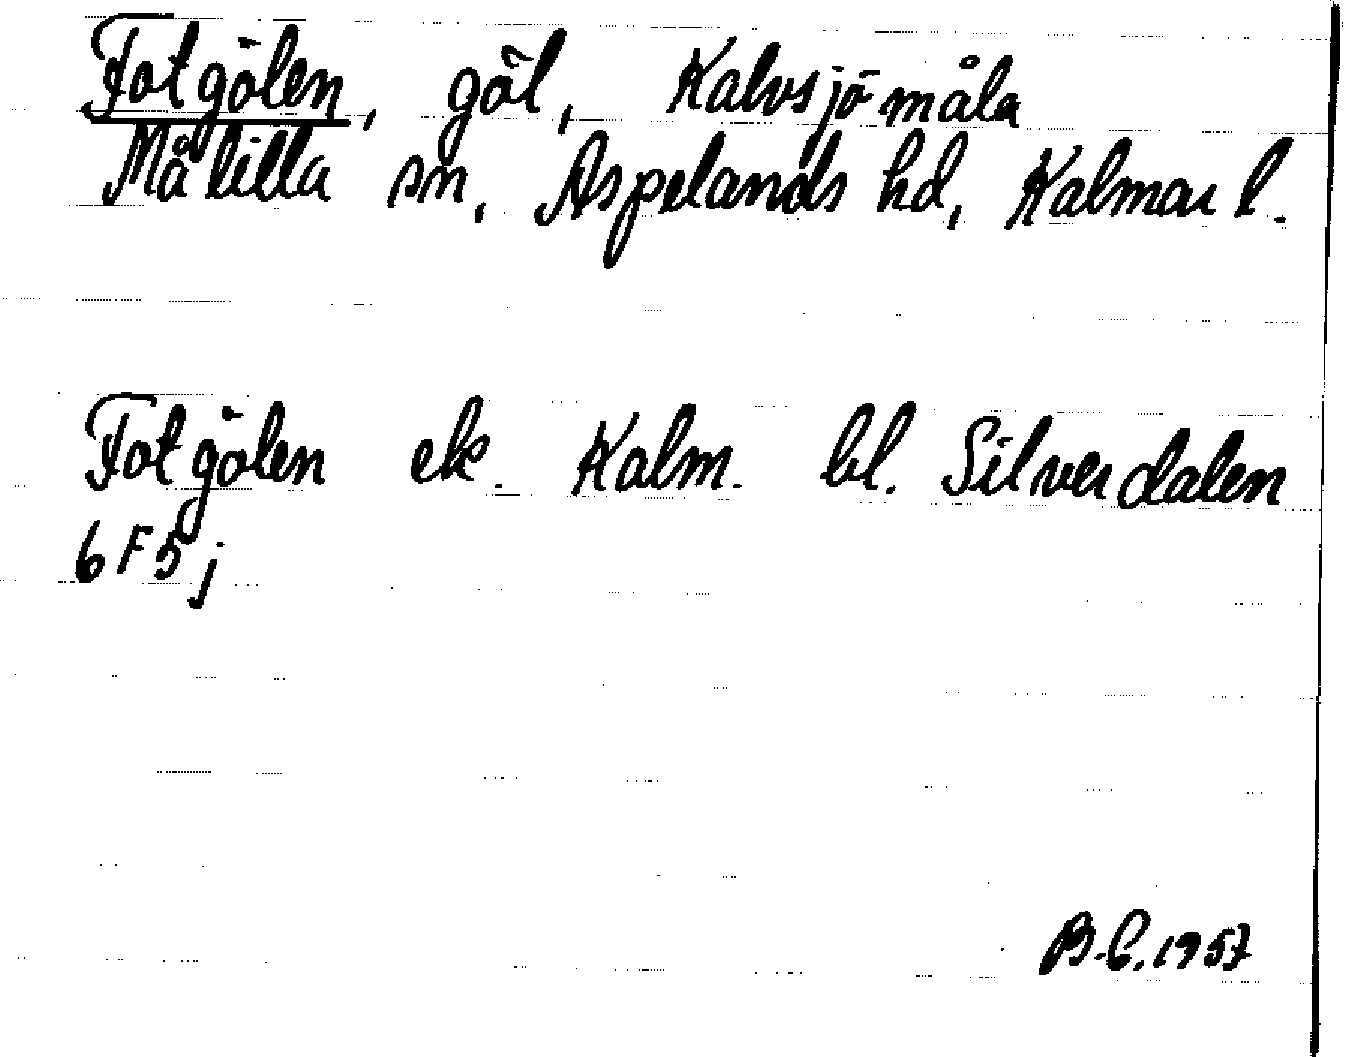 Fotgölen, göl, Kalvsjömåla
Målilla sn, Aspelands hd, Kalmar l.
Fotgölen ek. Kalm. bl. Silverdalen
6F5j
B.C. 1957